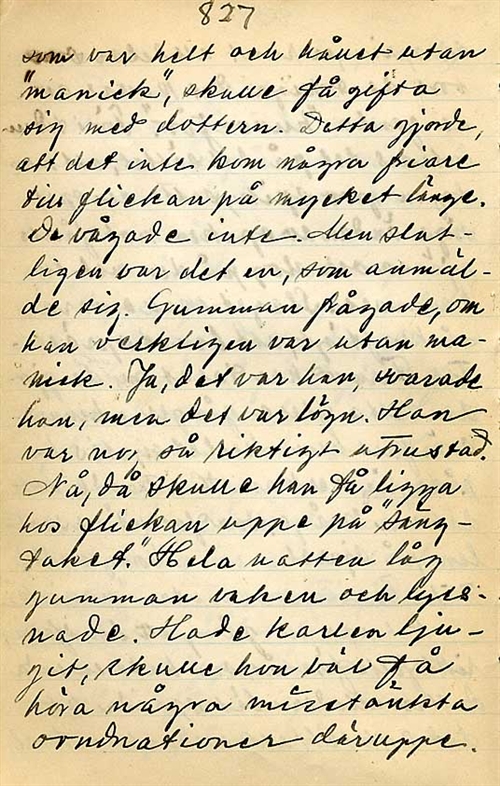 827
som var helt och hållet utan
"manick", skulle få gifta
sig med dottern. Detta gjorde,
att det inte kom några friare
till flickan på mycket länge.
De vågade inte. Men slut-
ligen var det en, som anmäl-
de sig. Gumman frågade, om
han verkligen var utan ma-
nick. Ja, det var han, svarade
han, men det var lögn. Han
var nog så riktigt utrustad.
Nå, då skulle han få ligga
hos flickan uppe på "säng-
taket." Hela natten låg
gumman vaken och lyss-
nade. Hade karlen lju-
git, skulle hon väl få
höra några misstänkta
däruppe.